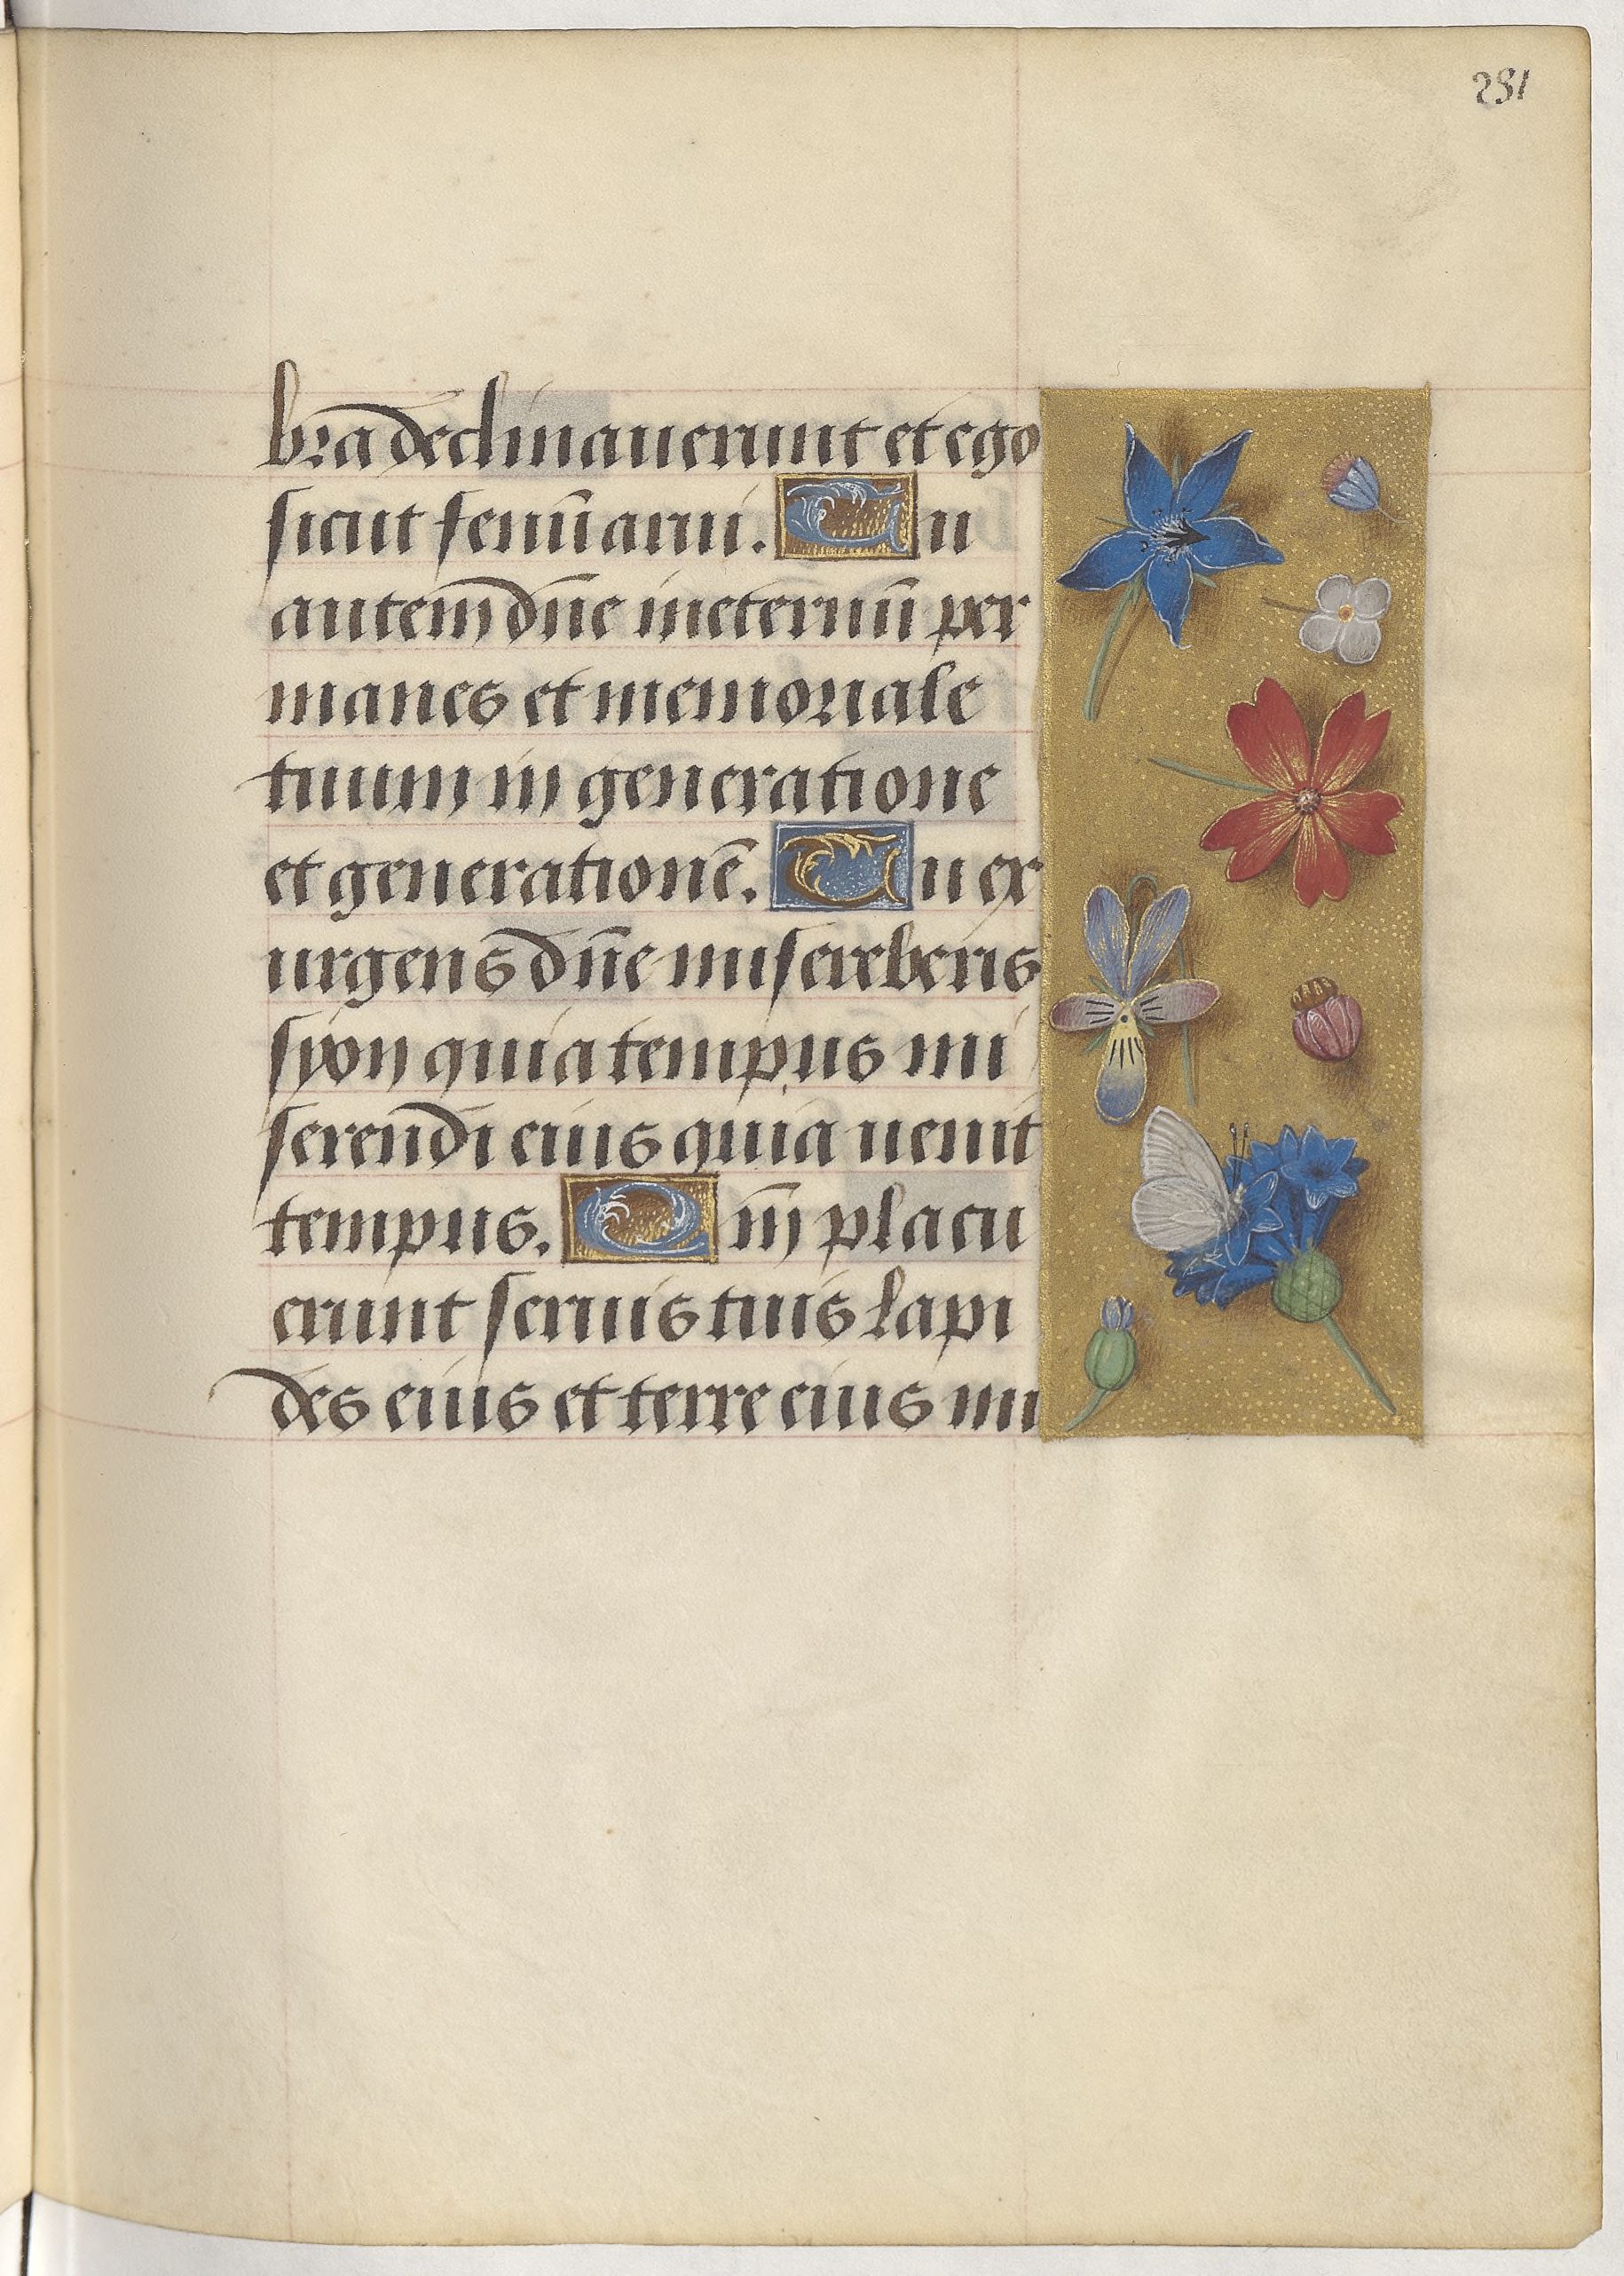 281
bra declinauerunt et ego
sicut fenū arui. Tu
autem dn̄e ineternū per
manes et memoriale
tuum in generatione
et generationē. Tu ex
urgens dn̄e misereberis
syon quia tempus mi
serendi eius quia uenit
tempus. Qm̄ placu
erunt seruis tuis lapi
des eius et terre eius mi